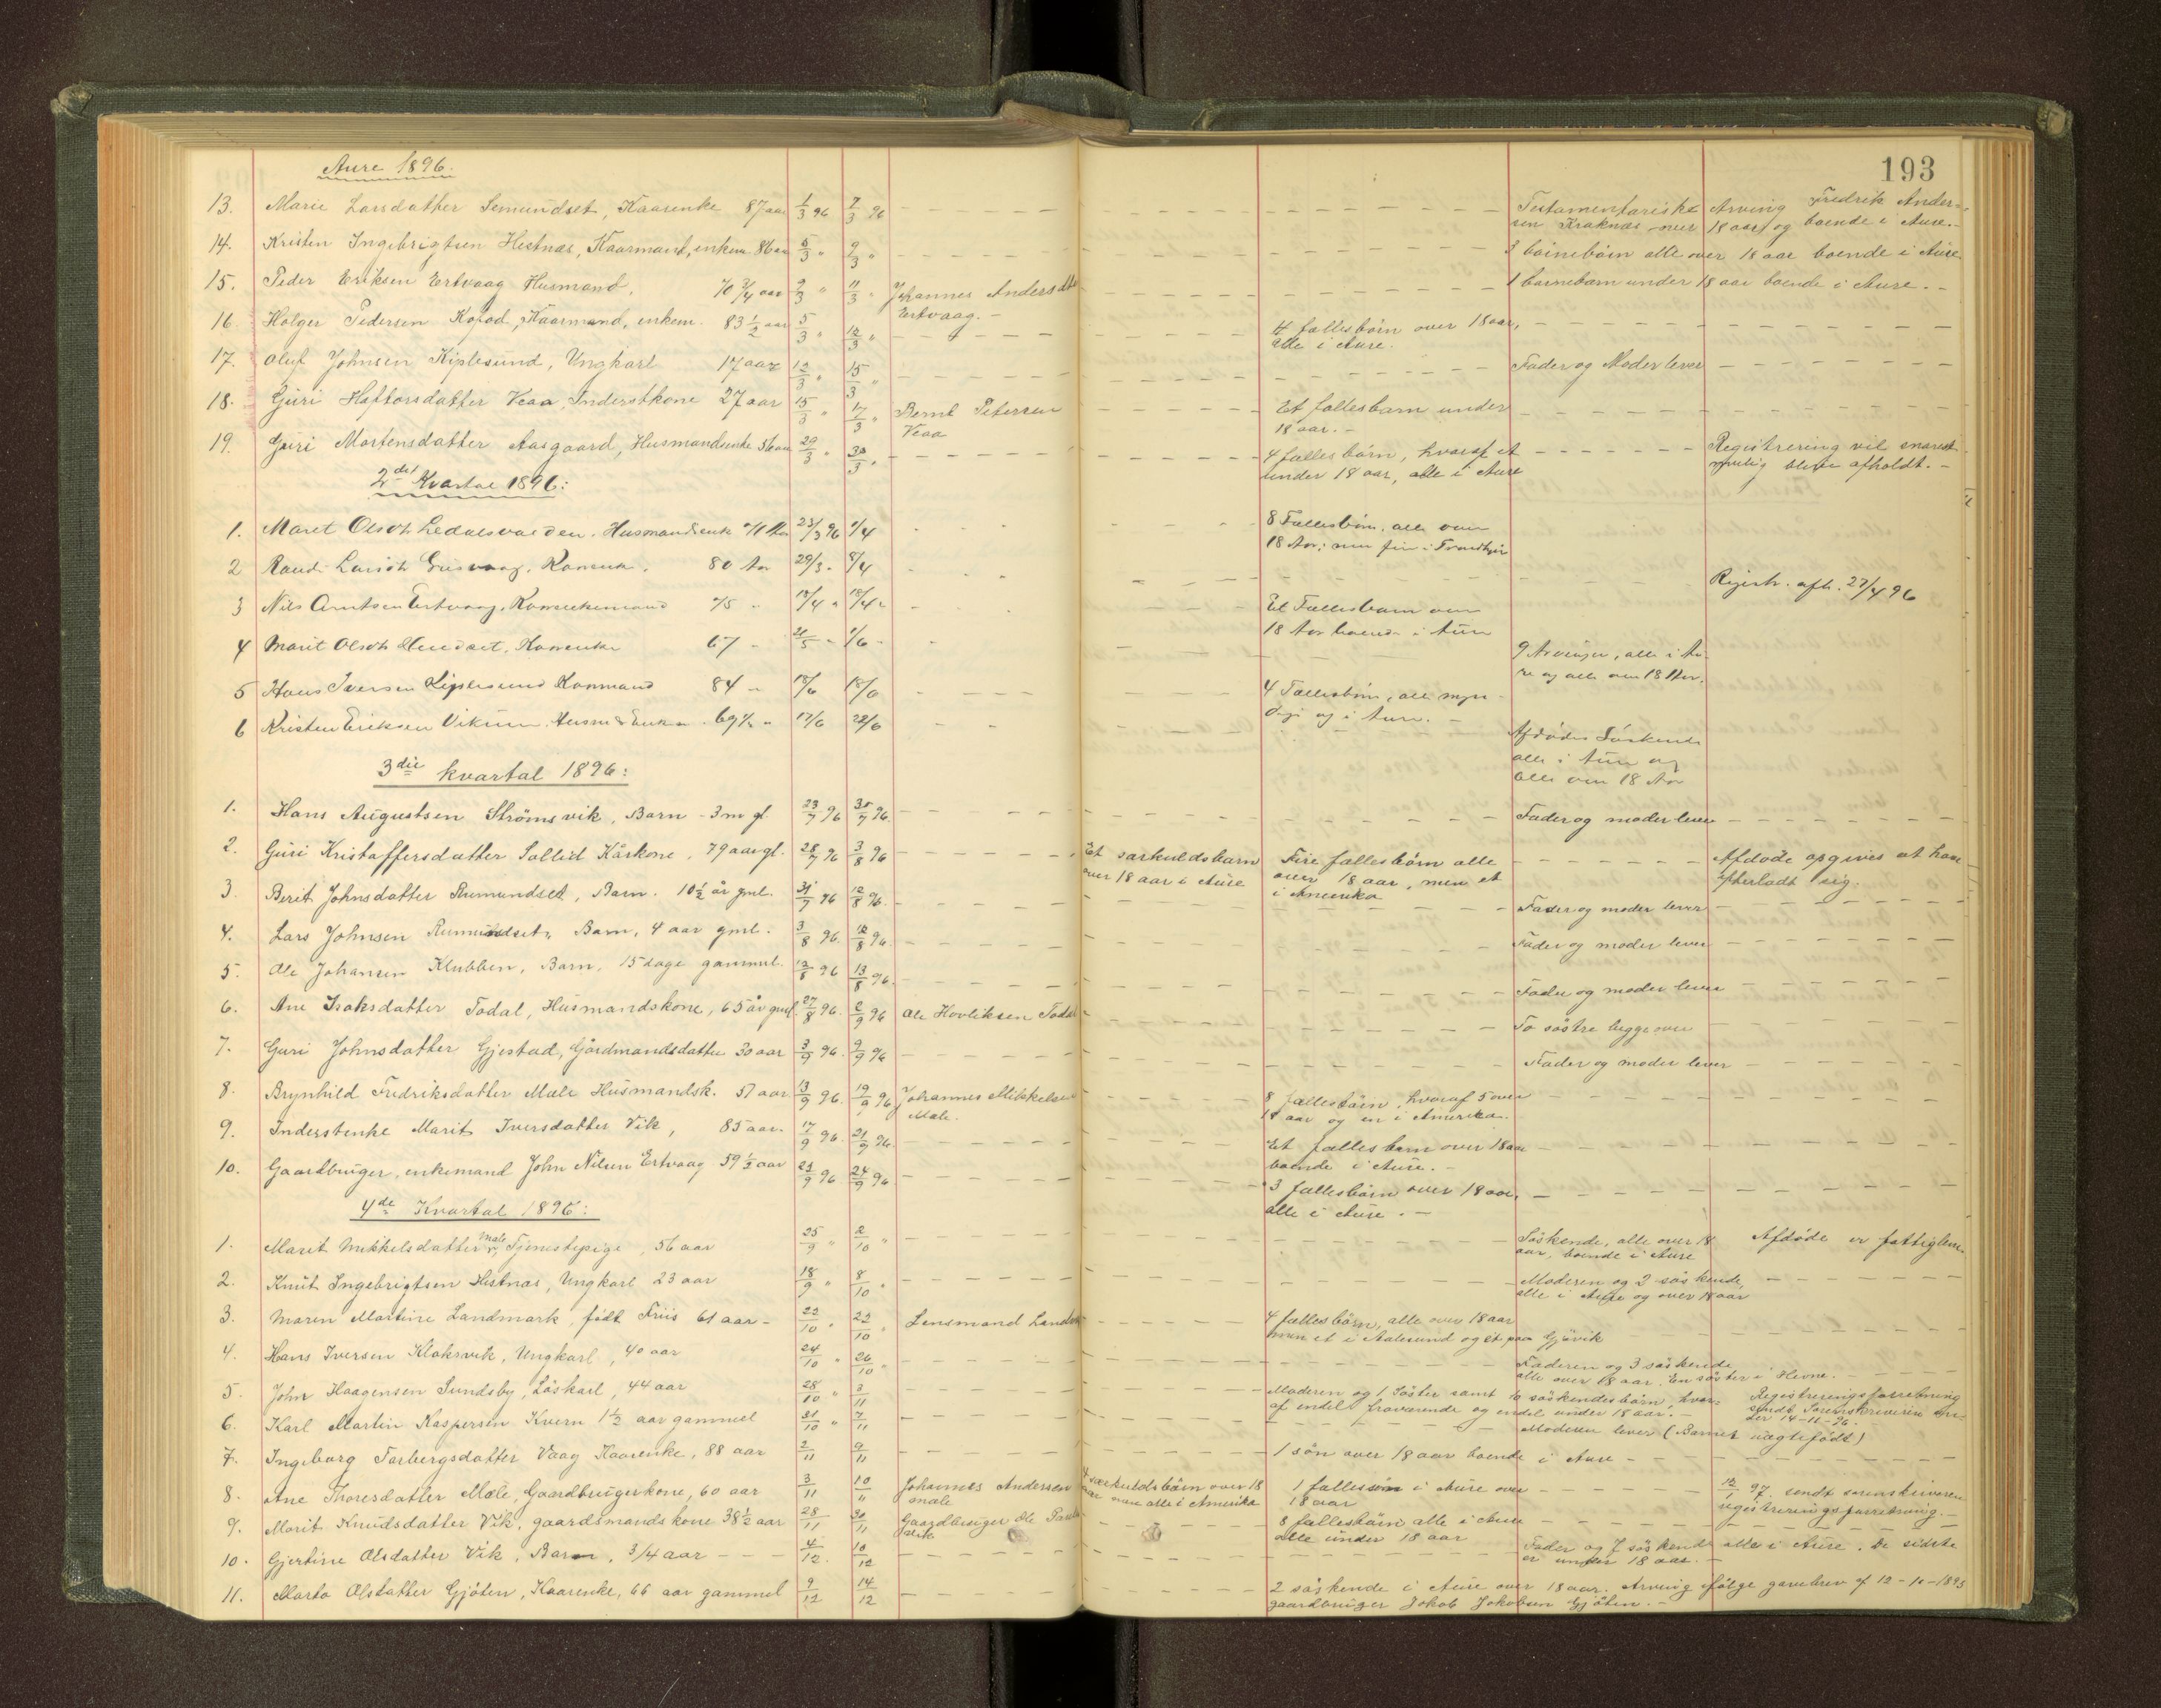 Aure 1896.
193
13. Marie Larsdatter Semundset, Kaarenke 87 aar 1/3 96 7/3 96 Testamentariske Arving Fredrik Ander-
sen Kraknæs over 18 aar og boende i Aure.-
14. Kristen Ingebrigtsen Hestnæs, Kaarmand, enkem. 86 aar 5/3 " 9/3 " 3 börnebörn alle over 18 aar boende i Aure
15. Peder Eriksen Ertvaag Husmand. 70 3/4 aar 9/3 " 11/3 " Johannes Andersdtr 1 barnebarn under 18 aar boende i Aure. -
Ertvaag. -
16. Holger Pedersen Kofod, Kaarmand, enkem. 83 1/2 aar 5/3 " 12/3 " 4 fællesbörn over 18 aar,
alle i Aure.
17. Oluf Johnsen Kiplesund, Ungkarl 17 aar 12/3 " 15/3 " Fader og Moder lever
18. Guri Halvorsdatter Veaa, Inderstkone 27 aar 15/3 " 17/3 " Bernt Petersen Et fællesbarn under
Veaa 18 aar. -
19. Guri Mortensdatter Aasgaard, Husmandsenke 56 aar 29/3 " 30/3 " 4 fællesbörn, hvoraf et Registrering vil snarest
under 18 aar, alle i Aure mulig blive afholdt. -
2det Kvartal 1896:
1. Maret Olsdtr Ledalsvalden, Husmandsenke Aar 23/3 96 1/4 8 Fællesbörn, alle over
18 Aar; i Trondhjem
2 Larsdtr Grisvaag, Kaarenke. 80 Aar 29/3 " 8/4 Registr. afh. 27/4 96
3 Nils Arntsen Ertvaag, 75 " 18/4 " Et Fællesbarn over
18 Aar boende i Aure
4 Marit Olsdtr Kaarenke 67 " /5 " 1/6 " 9 Arvinger, alle i Au-
re og alle over 18 Aar.
5 Hans Iversen Kiplesund Kaarmand 84 " 4 Fællesbörn, alle myn-
dige og i Aure. -
6 Kristen Eriksen 69 1/2 " 17/6 28/6 Afdödes Söskende
alle i Aure og
alle over 18 Aar
3die kvartal 1896:
1. Hans Augustsen Strömsvik, Barn - 3 m gl. 23/7 96 30/7 96. Fader og moder lever
2. Guri Kristoffersdatter Sollid Kårkone, 79 aar gl. 28/7 96 3/8 96 Et særkuldsbarn Fire fællesbörn alle Afdøde opgives at have
over 18 aar i Aure over 18 aar, men et efterladt sig.
i Amerika
3. Berit Johnsdatter Rumundset, Barn. 10 1/2 år gml. 31/7 96 12/8 96. Fader og moder lever
4. Lars Johnsen Rumundset, Barn, 4 aar gml. 3/8 96. 12/8 96. Fader og moder lever
5. Ole Johansen Klubben, Barn, 15 dage gammel. 12/8 96 13/8 96. Fader og moder lever
6. Ane Isaksdatter Todal, Husmandskone, 65 år gml. 27/8 96. 2/9 96 Ole Hovliksen Todal To söstre begge over
7. Guri Johnsdatter Gjestad, Gårdmandsdatter 30 aar 3/9 96. 9/9 96 Fader og moder lever
8. Brynhild Fredriksdatter Mæle Husmandsk. 57 aar 13/9 96. 19/9 96 Johannes Mikkelsen 8 fællesbörn, hvoraf 5 over
Mæle. 18 aar og en i Amerika.
9. Inderstenke Marit Iversdatter Vik, 85 aar. 17/9 96. 21/9 96. Et fællesbarn over 18 aar
boende i Aure. -
10. Gaardbruger, enkemand John Nilsen Ertvaag 59 1/2 aar 23/9 96. 24/9 96 3 fællesbörn over 18 aar,
alle i Aure. -
4de Kvartal 1896:
1. Marit Mikkelsdatter Mæle, Tjenestepige, 56 aar 25/9 " 2/10 " Söskende, alle over 18 Afdöde er fattiglem.
aar, boende i Aure
2. Knut Ingebrigtsen Hestnæs, Ungkarl 23 aar 18/9 " 8/10 " Moderen og 2 söskende,
alle i Aure og over 18 aar
3. Maren Martine Landmark, född Friis 61 aar - 22/10 " 23/10 " Lensmand Landmark 4 fællesbörn, alle over 18 aar
men et i Aalesund og et paa Gjövik
4. Hans Iversen Klaksvik, Ungkarl, 40 aar 24/10 " 26/10 " Faderen og 3 söskende,
alle over 18 aar. En söster i Hevne. -
5. John Haagensen Sundsby, Löskarl, 44 aar 28/10 " 3/11 Moderen og 1 Söster samt 10 söskendesbörn, hvor- Registreringsforretning
af endel fraværende og endel under 18 aar. - sendt Sorenskriveren un-
der 14-11-96.
6. Karl Martin Kaspersen Kvern 1 1/2 aar gammel 31/10 " 7/11 Moderen lever (Barnet uægtefödt)
7. Ingeborg Tarbergsdatter Vaag Kaarenke, 88 aar 2/11 9/11 1 sön over 18 aar boende i Aure -
8. Ane Thoresdatter Mæle, Gaardbrugerkone, 60 aar 3/11 10/11 Johannes Andersen 4 særkuldsbörn over 18 1 fællessön i Aure over 12/1 97 sendt sorenskriveren
Mæle aar men alle i Amerika 18 aar registreringsforretning. -
9. Marit Knudsdatter Vik, gaardsmandskone 38 1/2 aar 28/11 30/11 Gaardbruger Ole 8 fællesbörn alle i Aure
Vik alle under 18 aar
10. Gjertine Olsdatter Vik, Barn, 3/4 aar 4/12. 10/12 Fader og 7 söskende alle i Aure. De sidste
er under 18 aar. -
11. Marta Olsdatter Gjöten, Kaarenke, 66 aar gammel 9/12 14/12 2 söskende i Aure over 18 aar. Arving ifölge gavebrev af 12-10-1893
gaardbruger Jokob Jakobsen Gjöten. -